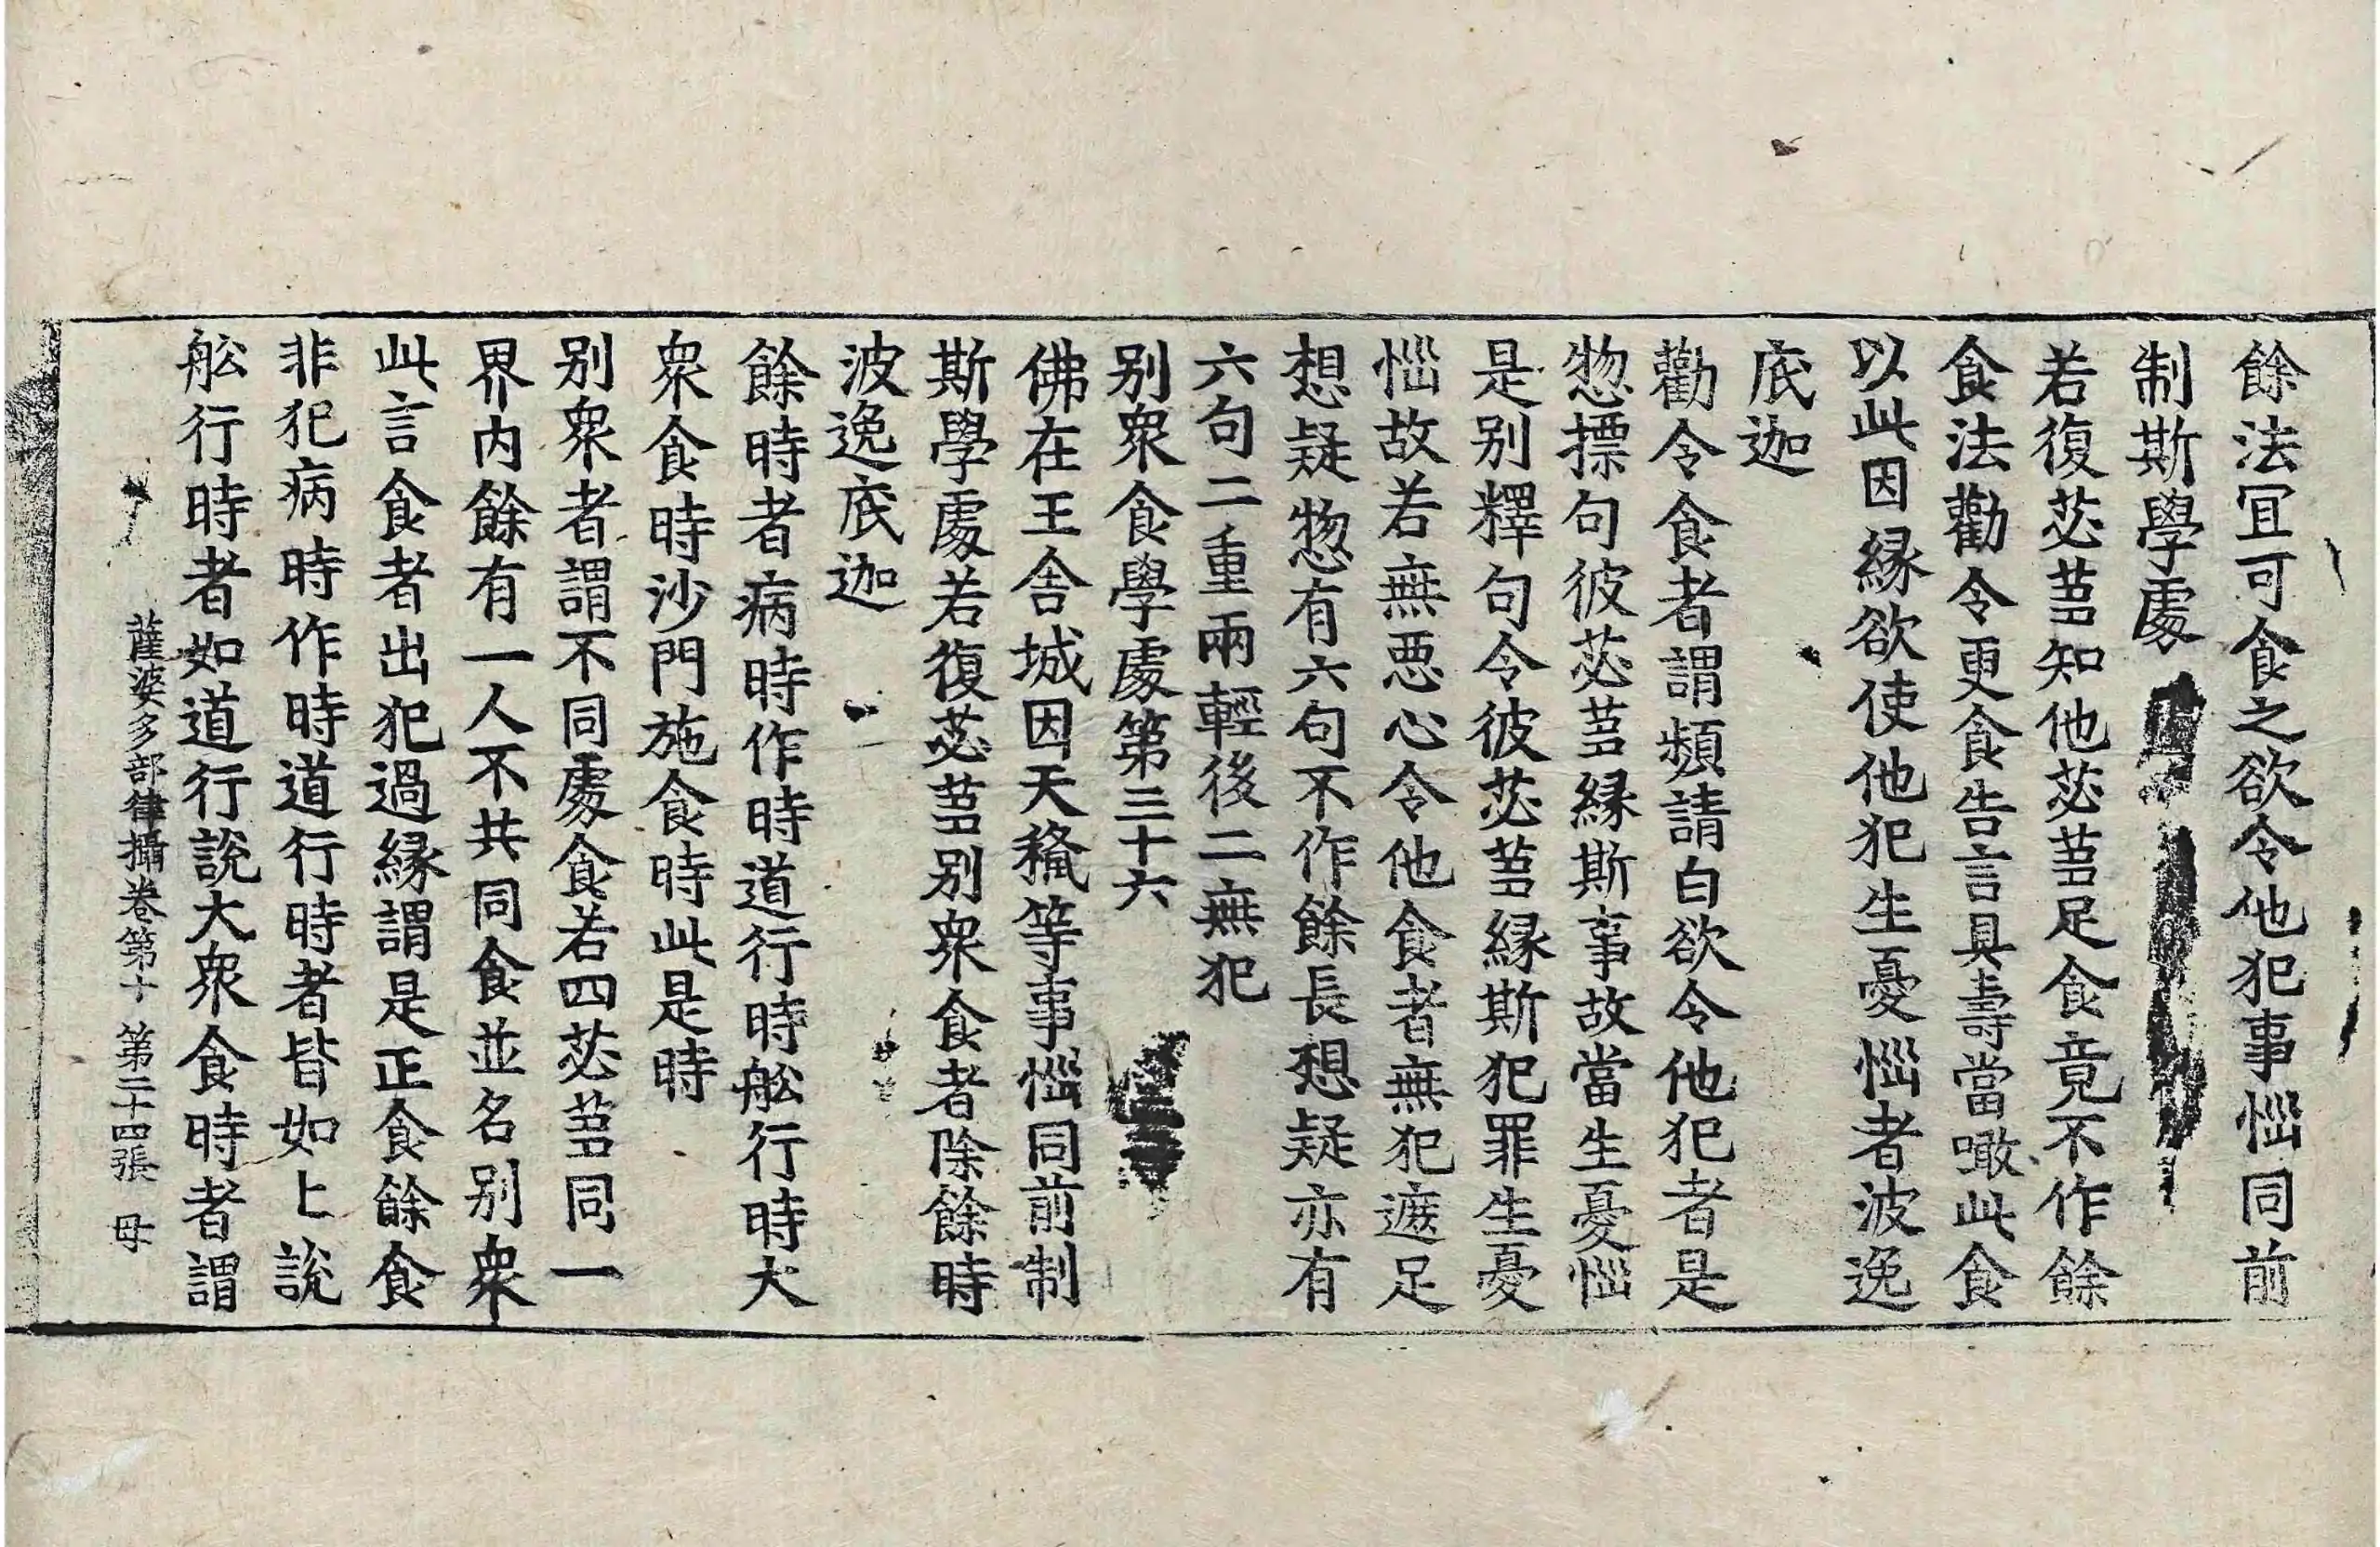 餘法冝可食之欲令他犯事惱同前
制斯學處
若復苾蒭知他苾蒭足食竟不作餘
食法勸令更食告言具壽當噉此食
以此因緣欲使他犯生憂惱者波逸
底迦
勸令食者謂頻請白欲令他犯者是
惣摽句彼苾蒭緣斯事故當生憂惱
是别釋句令彼苾蒭緣斯犯罪生憂
惱故若無惡心令他食者無犯遮足
想疑惣有六句不作餘長想疑亦有
六句二重兩輕後二無犯
别衆食學處第三十六
佛在王舍城因天授等事惱同前制
斯學處若復苾蒭别衆食者除餘時
波逸底迦
餘時者病時作時道行時舩行時大
衆食時沙門施食時此是時
别衆者謂不同處食若四苾蒭同一
界内餘有一人不共同食並名别衆
此言食者出犯過緣謂是正食餘食
非犯病時作時道行時者皆如上說
舩行時者如道行說大衆食時者謂
薩婆多部律攝卷第十 第二十四張 母